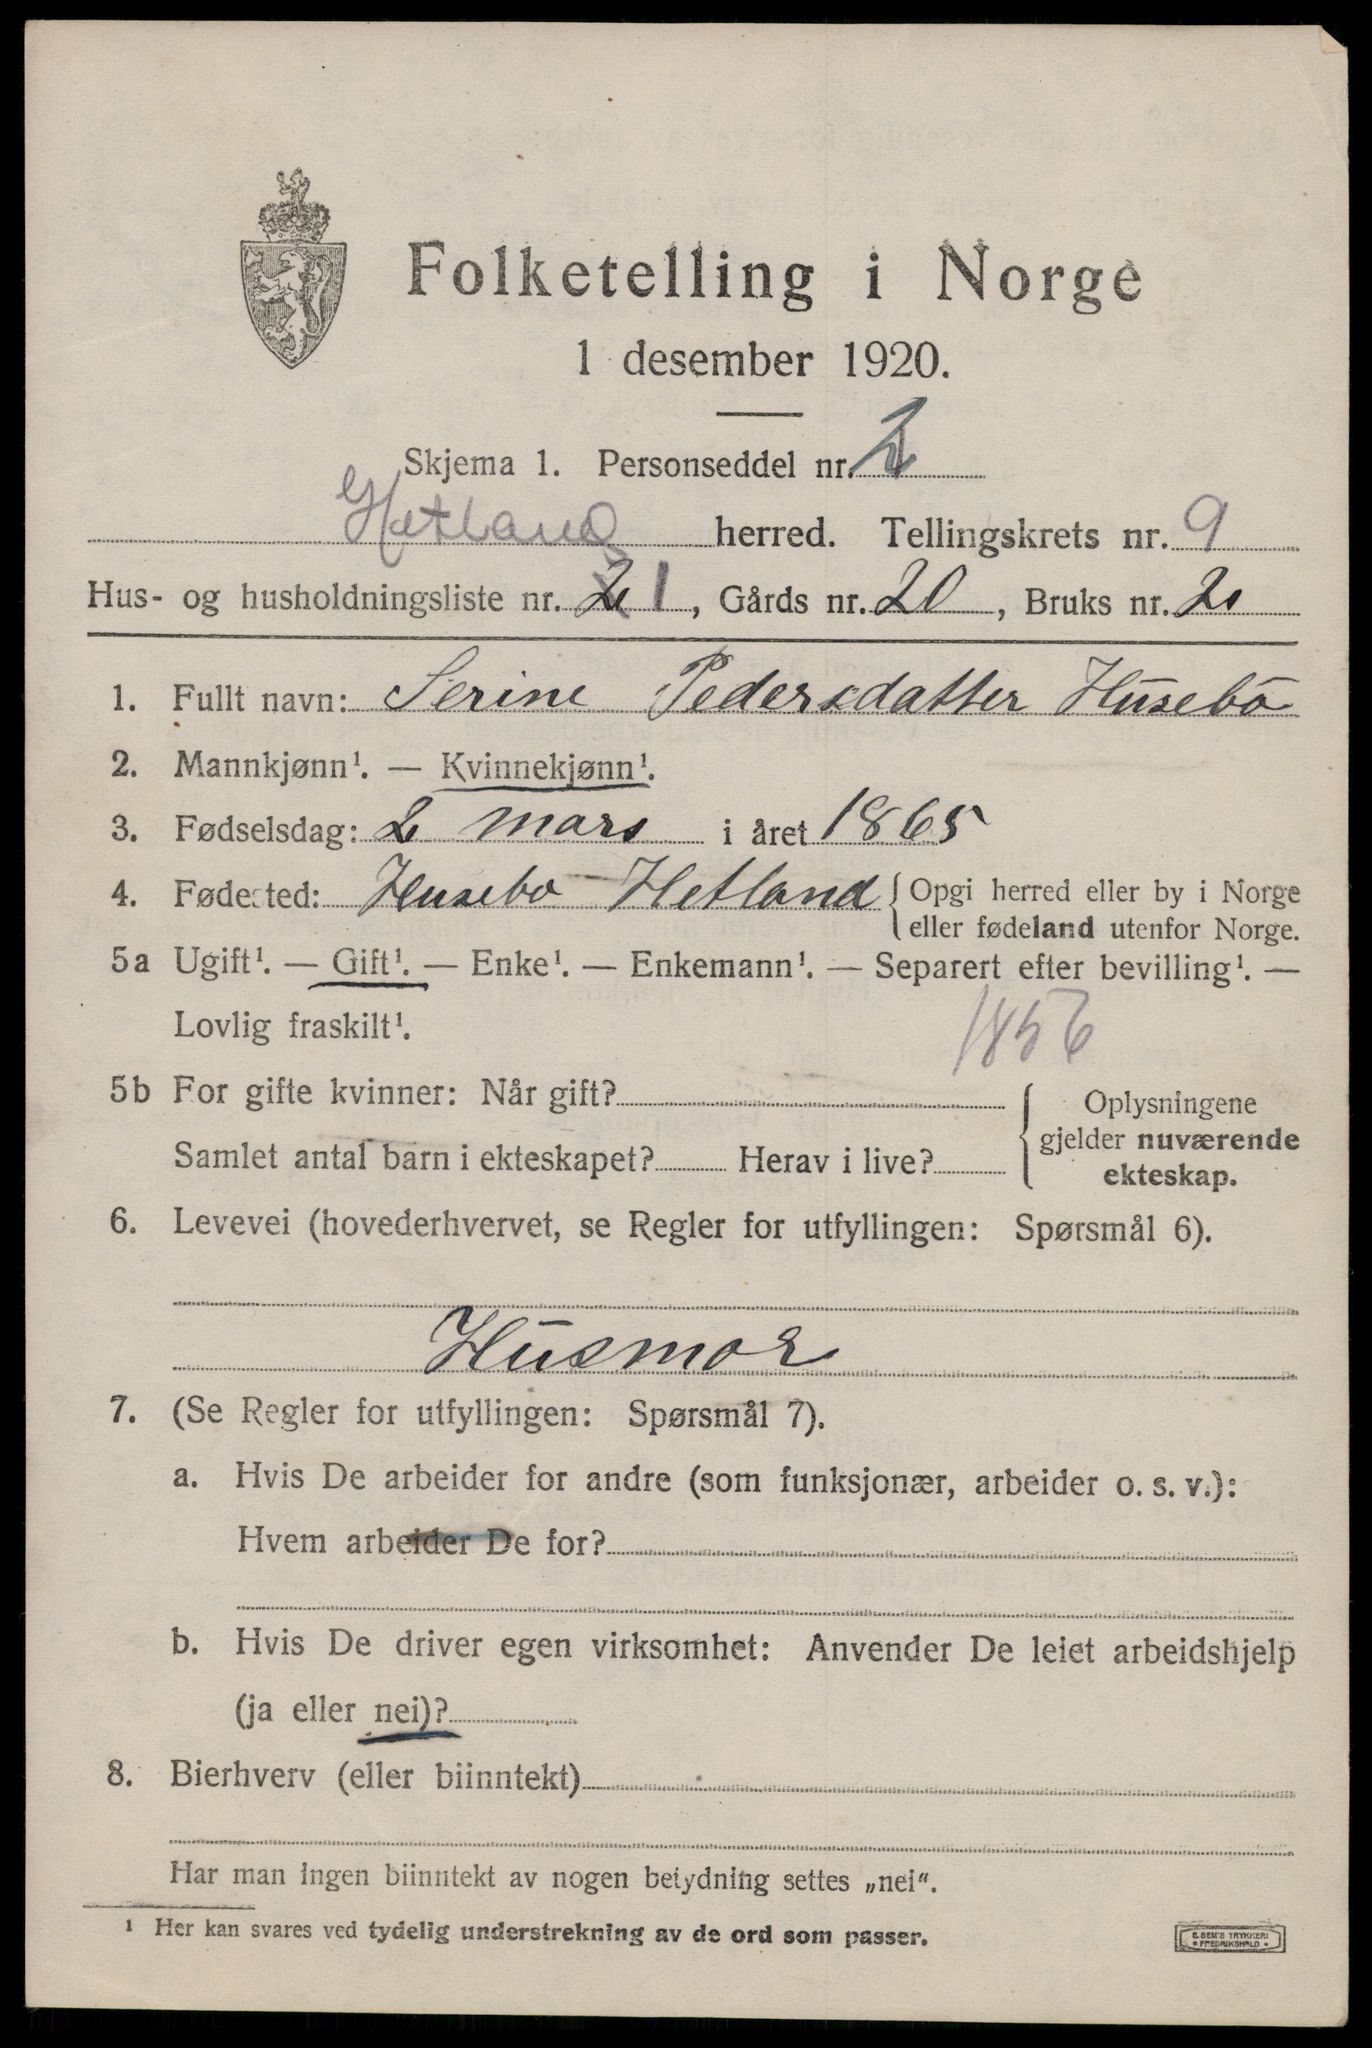 Folketelling i Norge
1 desember 1920.
Skjema 1. Personseddel nr. 2
Hetland herred. Tellingskrets nr. 9
Hus- og husholdningsliste nr. 1, Gårds nr. 20, Bruks nr. 2
1. Fullt navn: Serine Pedersdatter Husebö
2. Mannkjønn¹. — Kvinnekjønn¹.
3. Fødselsdag: 2 mars i året 1865
4. Fødested: Husebo Hetland { Opgi herred eller by i Norge
eller fødeland utenfor Norge.
5a Ugift¹. — Gift¹. — Enke¹. — Enkemann¹. — Separert efter bevilling¹. —
Lovlig fraskilt¹.
1856
5b For gifte kvinner: Når gift?
Samlet antal barn i ekteskapet? Herav i live?
Oplysningene
gjelder nuværende
ekteskap.
6. Levevei (hovederhvervet, se Regler for utfyllingen: Spørsmål 6).
Husmor
7. (Se Regler for utfyllingen: Spørsmål 7).
a. Hvis De arbeider for andre (som funksjonær, arbeider o. s. v.):
Hvem arbeider De for?
b. Hvis De driver egen virksomhet: Anvender De leiet arbeidshjelp
(ja eller nei)?
8. Bierhverv (eller biinntekt)
Har man ingen biinntekt av nogen betydning settes „nei".
¹ Her kan svares ved tydelig understrekning av de ord som passer.
E. SEM'S TRYKKERI
FREDRIKSHALD